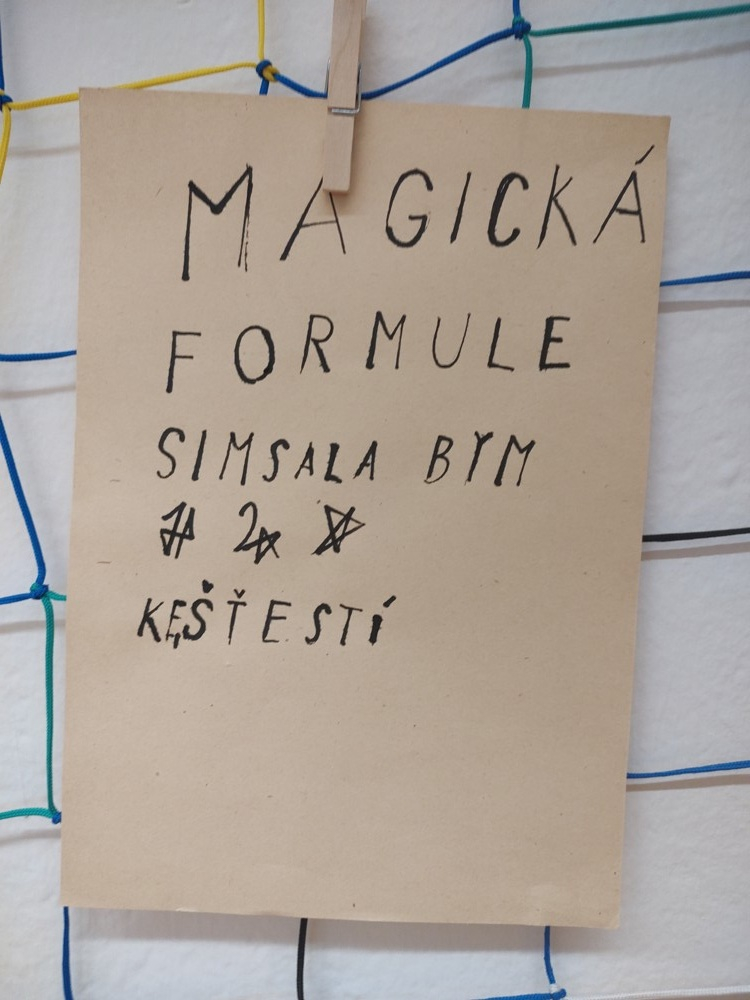 MAGICKÁ
FORMULE
SIMSALA BYM
KEŠŤESTÍ